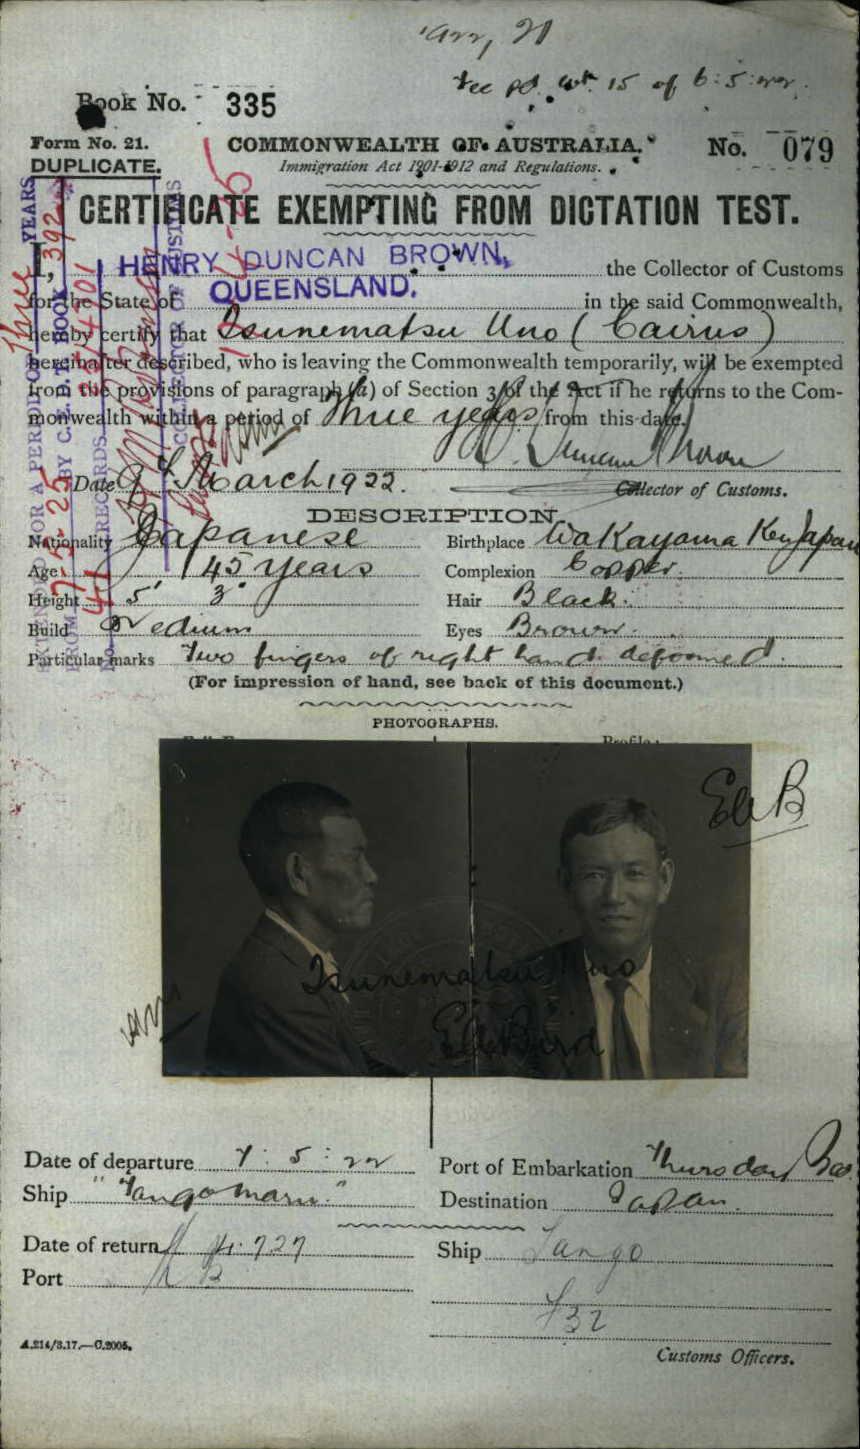 Book No. 335
Form No. 21.
DUPLICATE.
COMMONWEALTH OF AUSTRALIA.
Immigration Act 1901-1912 and Regulations.
No. 079
CERTIFICATE EXEMPTING FROM DICTATION TEST.
I, HENRY DUNCAN BROWN, the Collector of Customs
for the State of QUEENSLAND. in the said Commonwealth,
hereby certify that Tsunematsu Uno (Cairns)
hereinafter described, who is leaving the Commonwealth temporarily, will be exempted
from the provisions of paragraph (a) of Section 3 of the Act if he returns to the Com-
monwealth within a period of Three years from this date.
H. Duncan Brown
Date 9th March 1922. Collector of Customs.
DESCRIPTION
Nationality Japanese Birthplace Wakayama Ken Japan
Age 45 years Complexion Copper.
Height 5' 3" Hair Black.
Build Medium Eyes Brown.
Particular marks Two fingers of right hand deformed.
(For impression of hand, see back of this document.)
PHOTOGRAPHS.
Profile:
Tsunematsu Uno
Date of departure 7:5:22 Port of Embarkation Thursday
Ship "Tango Maru." Destination Japan.
Date of return Ship Tango
Port
A.214/3.17.—C.2005.
Customs Officers.